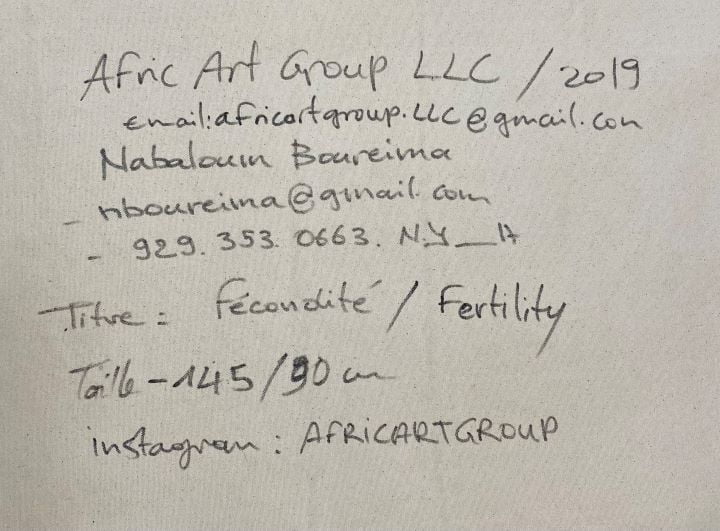 Afric Art Group LLC / 2019
email: africartgroup.LLC@gmail.com
Nabaloum Boureima
- nboureima@gmail.com
- 929. 353. 0663. N.Y__
Titre = Fécondité / Fertility
Taille - 145/90 cm
instagram : AFRICARTGROUP